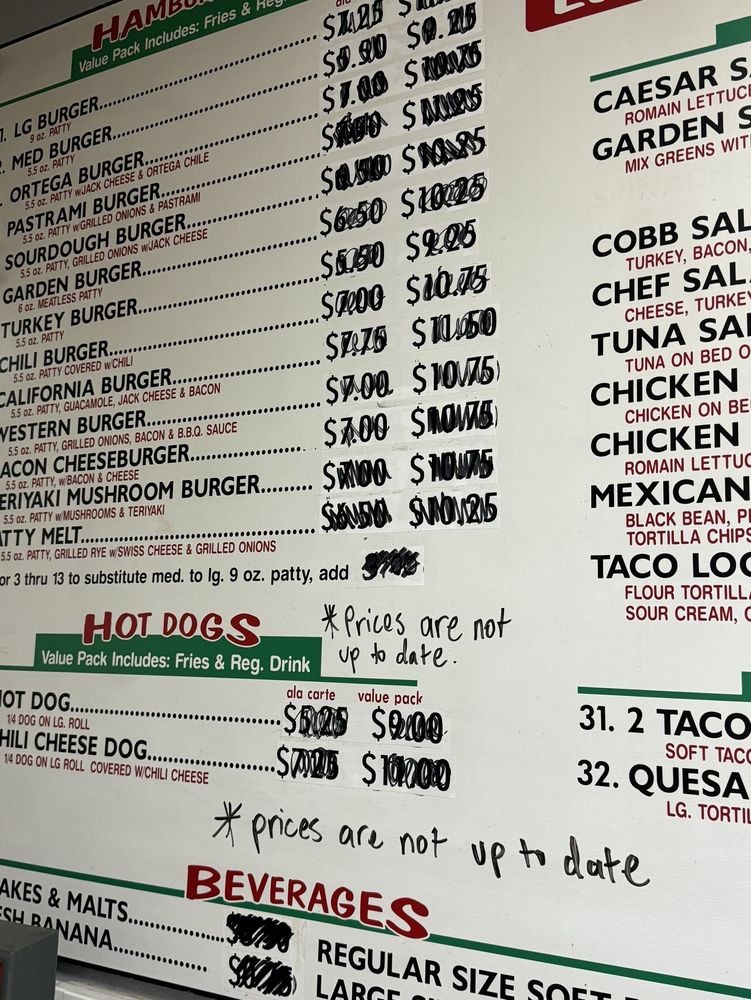 HAMBU
Value Pack Includes: Fries & Re
1. LG BURGER
9 oz. PATTY
MED BURGER
5.5 oz. PATTY
ORTEGA BURGER
5.5 oz. PATTY w/JACK CHEESE & ORTEGA CHILE
PASTRAMI BURGER
5.5 oz. PATTY w/GRILLED ONIONS & PASTRAMI
SOURDOUGH BURGER
5.5 oz. PATTY, GRILLED ONIONS w/JACK CHEESE
GARDEN BURGER
6 oz. MEATLESS PATTY
TURKEY BURGER
5.5 oz. PATTY
CHILI BURGER
5.5 oz. PATTY COVERED w/CHILI
CALIFORNIA BURGER
5.5 oz. PATTY, GUACAMOLE, JACK CHEESE & BACON
WESTERN BURGER
5.5 oz. PATTY, GRILLED ONIONS, BACON & B.B.Q. SAUCE
ACON CHEESEBURGER
5.5 oz. PATTY, w/BACON & CHEESE
ERIYAKI MUSHROOM BURGER
5.5 oz. PATTY w/MUSHROOMS & TERIYAKI
TTY MELT
5.5 oz. PATTY, GRILLED RYE w/SWISS CHEESE & GRILLED ONIONS
or 3 thru 13 to substitute med. to lg. 9 oz. patty, add
$6.50 $10.25
$5.50 $9.25
$7.00 $10.75
$7.75 $11.50
$7.00 $10.75
$7.00 $10.75
$7.00 $10.75
$6.50 $10.25
* Prices are not
up to date.
HOT DOGS
Value Pack Includes: Fries & Reg. Drink
ala carte value pack
HOT DOG $5.25 $9.00
1/4 DOG ON LG. ROLL
HILI CHEESE DOG $7.25 $11.00
1/4 DOG ON LG ROLL COVERED W/CHILI CHEESE
* prices are not up to date
BEVERAGES
AKES & MALTS
SH BANANA
REGULAR SIZE SOFT
LARGE
CAESAR S
ROMAIN LETTUCE
GARDEN S
MIX GREENS WIT
COBB SAL
TURKEY, BACON,
CHEF SAL
CHEESE, TURKEY
TUNA SAL
TUNA ON BED O
CHICKEN
CHICKEN ON BE
CHICKEN
ROMAIN LETTUC
MEXICAN
BLACK BEAN, P
TORTILLA CHIPS
TACO LOC
FLOUR TORTILLA
SOUR CREAM, G
31. 2 TACO
SOFT TACO
32. QUESA
LG. TORTIL